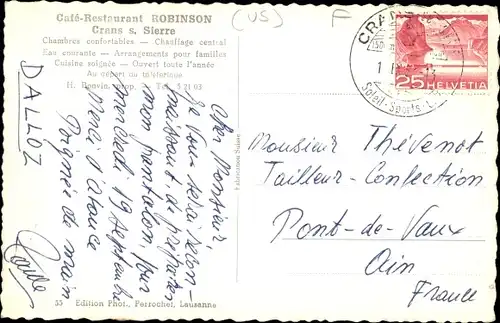 Café-Restaurant ROBINSON
Crans s. Sierre
Chambres confortables - Chauffage central
Eau courante - Arrangements pour familles
Cuisine soignée - Ouvert toute l'année
Au départ du téléférique
H. Bonvin, prop. Tél. 5 21 03
(VS)
F
CRANS
Soleil-Sports
25 HELVETIA
DALLOZ
Cher Monsieur,
Je vous serai recon-
naissant, de préparer
mon pantalon, pour
mercredi 19 septembre
Merci d'avance
Poignée de main
Fabrication Suisse
Monsieur Thévenot
Tailleur-Confection
Pont-de-Vaux
Ain
France
55 Edition Phot. Perrochet, Lausanne